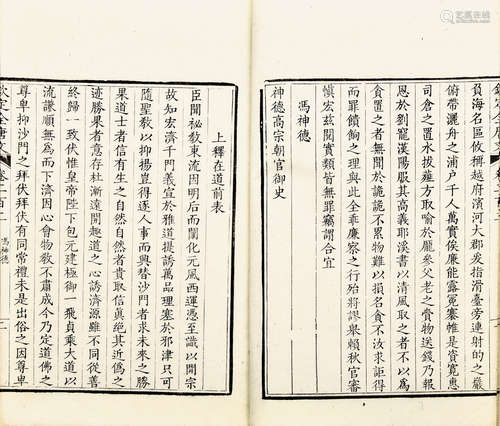 貟海名區攸稱越府濱河大郡爰指滑臺旁剌史之嚴
俯帶灑舟之浦戸千人萬實俟廉能露冕褰帷是資寛惠
司倉之置水拔薤方取喻於龐參父老之賫物送錢乃報
恩於劉寵漢陽服其高義耶溪書以清風取之者不以為
貪置之者無聞於詭詭不累物難以損名貪不汝求詎得
而罪饋餉之理與此全乖廉察之行殆將謬舉賴秋官審
愼宏兹閱實類皆無罪竊謂合宜
馮神德
神德高宗朝官御史
上釋在道前表
臣聞祕敎東流因明后而闡化元風西運憑至識以開宗
故知宏濟千門義宣於雅道提誘萬品理塞於邪津只可
隨聖敎以抑揚豈得逐人事而興替沙門者求未來之勝
果道士者信有生之自然自然者貴取信眞絕其近僞之
迹勝果者意存杜漸遠開趣道之心誘濟源雖不同從善
終歸一致伏惟皇帝陛下包元建極御一飛貞乘大道以
流謙順無為而下濟因心會物敎不肅成今乃定道佛之
尊卑抑沙門之拜伏拜伏有同常禮未是出俗之因尊卑
欽定全唐文
卷二百二
馮神德